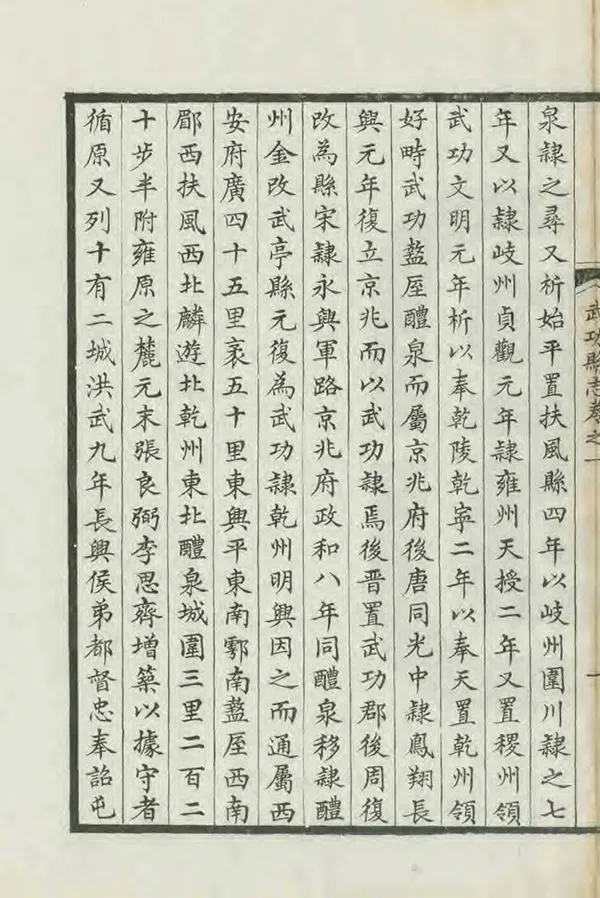 泉隸之尋又析始平置扶風縣四年以岐州圍川隸之七
年又以隸岐州貞觀元年隸雍州天授二年又置稷州領
武功文明元年析以奉乾陵乾寧二年以奉天置乾州領
好畤武功盩厔醴泉而屬京兆府後唐同光中隸鳳翔長
興元年復立京兆而以武功隸焉後晋置武功郡後周復
改為縣宋隸永興軍路京兆府政和八年同醴泉移隸醴
州金改武亭縣元復為武功隸乾州明興因之而通屬西
安府廣四十五里袤五十里東興平東南鄠南盩厔西南
郿西扶風西北麟遊北乾州東北醴泉城圍三里二百二
十步半附雍原之麓元末張良弼李思齊增築以據守者
循原又列十有二城洪武九年長興侯弟都督忠奉詔屯
武功縣志卷之一